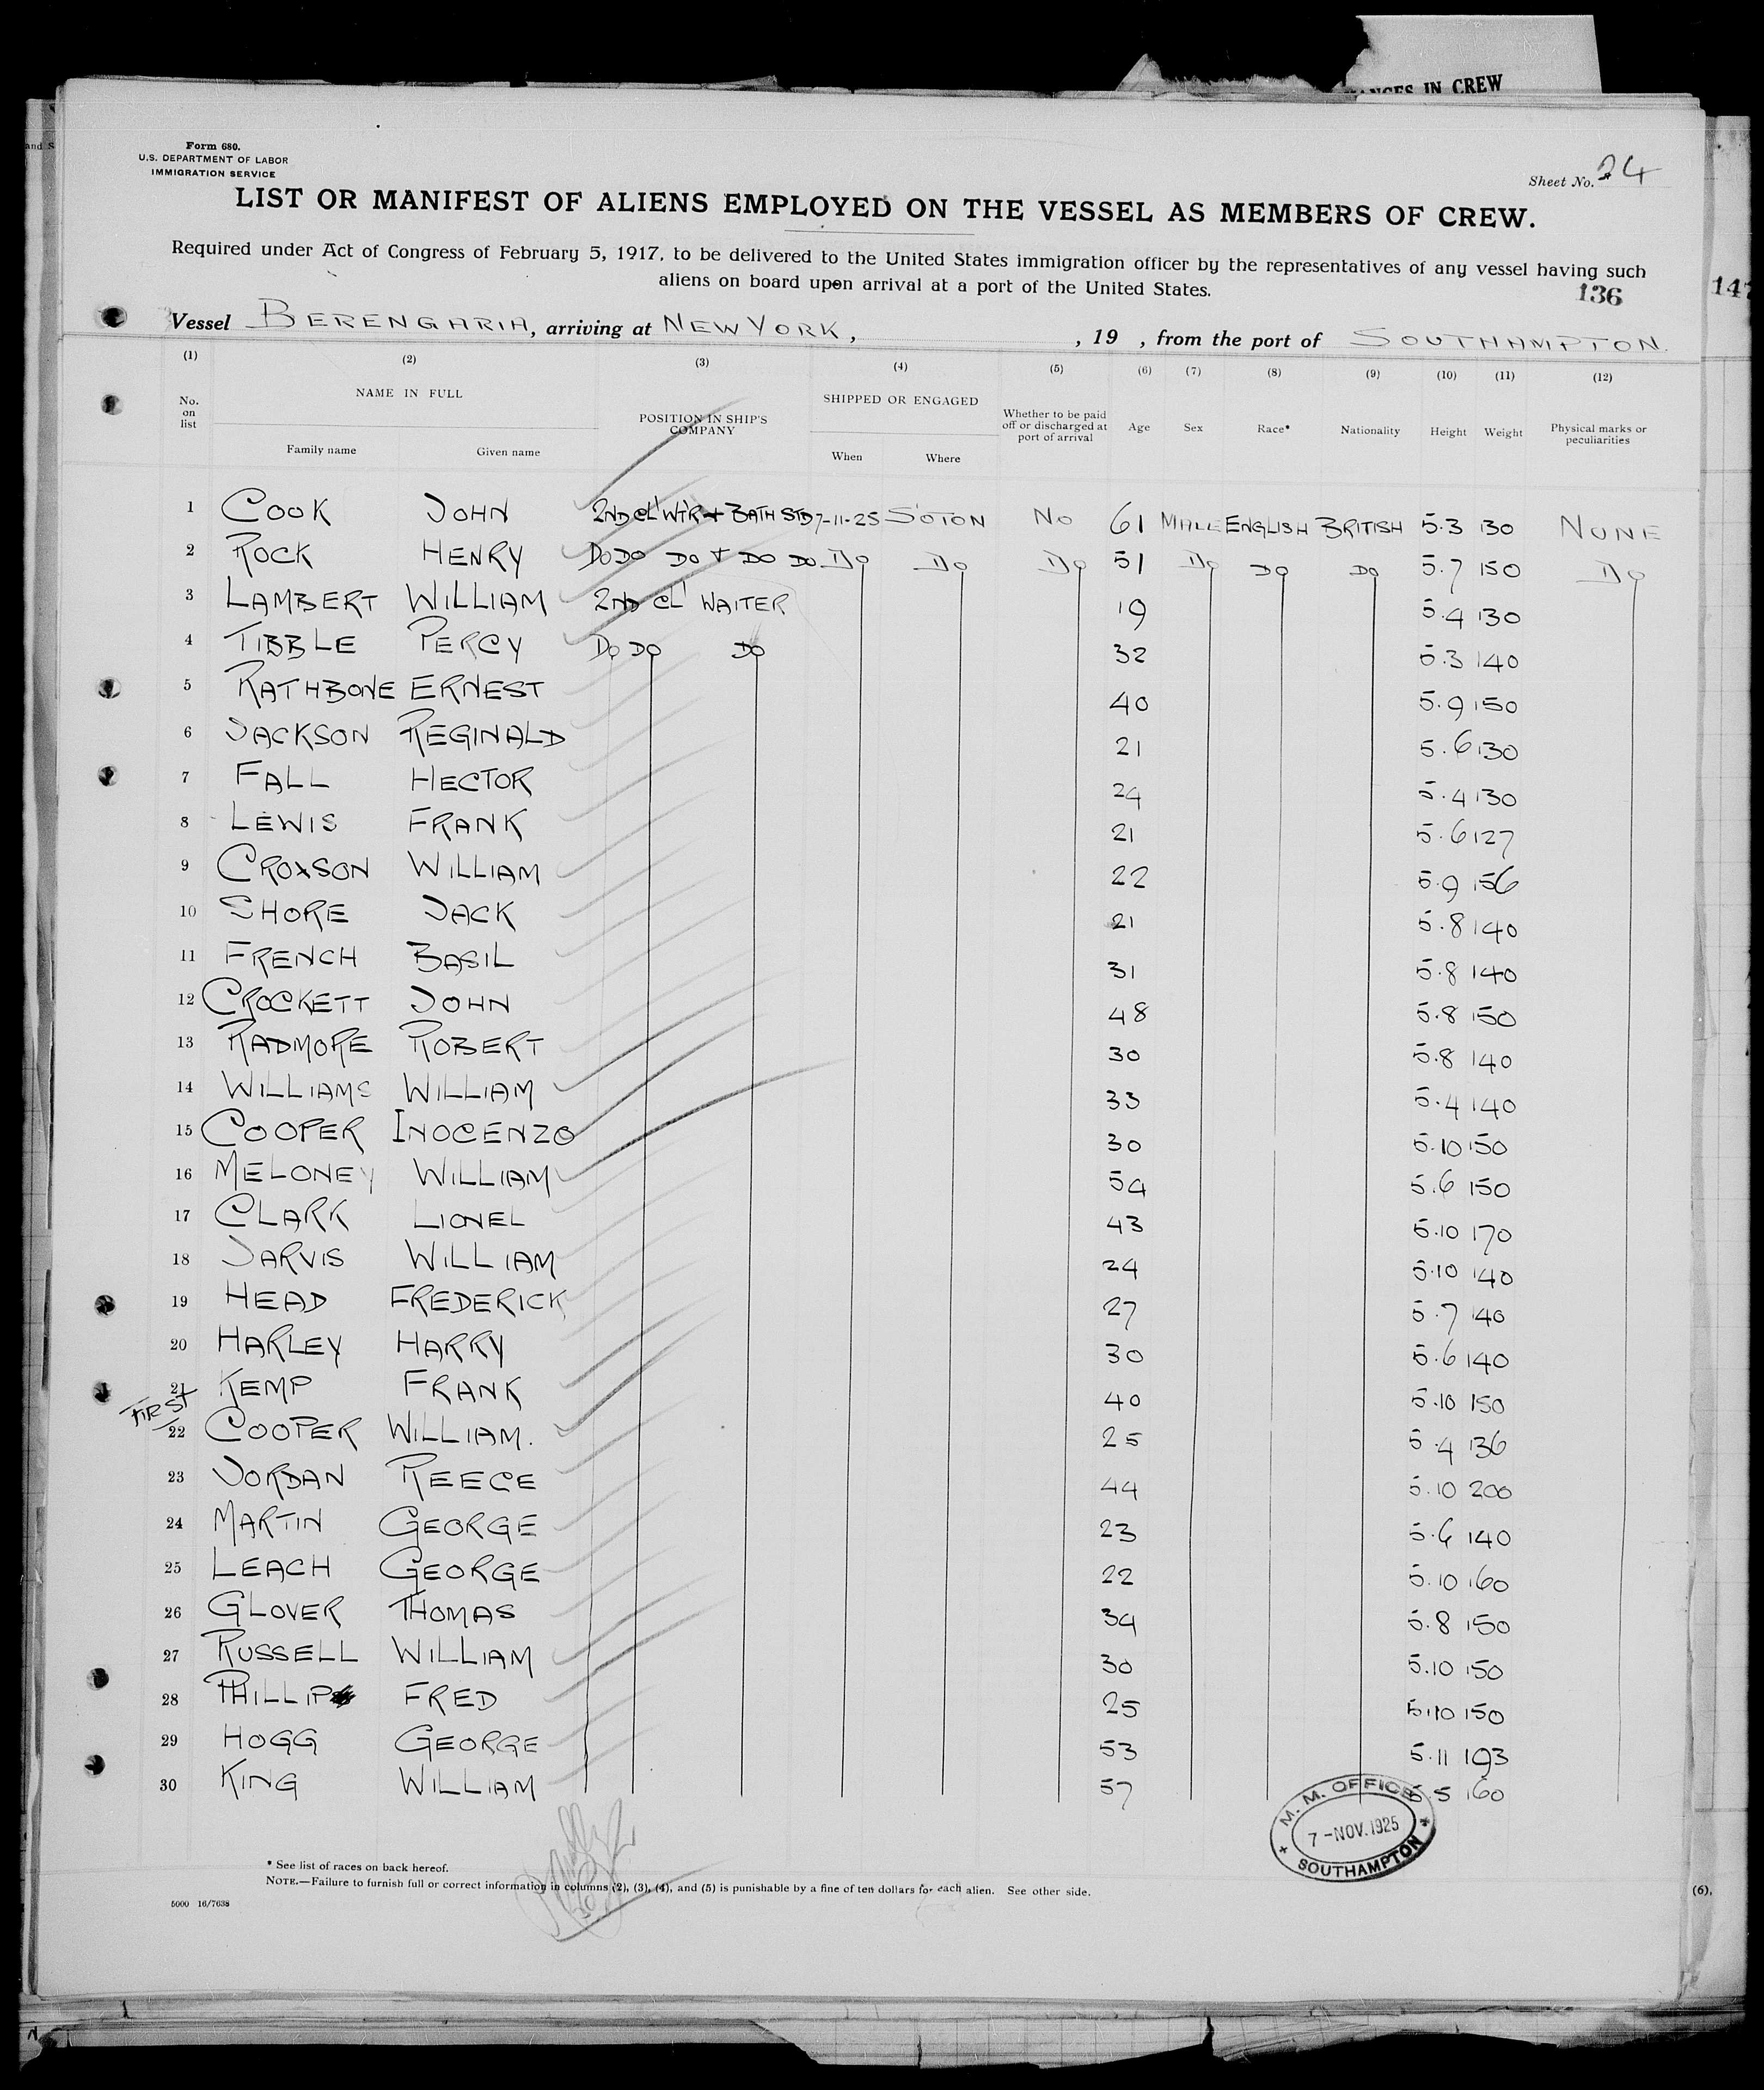 ANGES IN CREW
and S
Form 680.
U.S. DEPARTMENT OF LABOR
IMMIGRATION SERVICE
Sheet No. 24
LIST OR MANIFEST OF ALIENS EMPLOYED ON THE VESSEL AS MEMBERS OF CREW.
Required under Act of Congress of February 5, 1917, to be delivered to the United States immigration officer by the representatives of any vessel having such
aliens on board upon arrival at a port of the United States.
136
147
Vessel BERENGARIA, arriving at NEW YORK, , 19 , from the port of SOUTHAMPTON.
(1) (2) (3) (4) (5) (6) (7) (8) (9) (10) (11) (12)
No. on list NAME IN FULL Family name Given name POSITION IN SHIP'S COMPANY SHIPPED OR ENGAGED When Where Whether to be paid off or discharged at port of arrival Age Sex Race* Nationality Height Weight Physical marks or peculiarities
1 COOK JOHN 2ND CL' WTR + BATH STD 7-11-25 S'OTON NO 61 MALE ENGLISH BRITISH 5.3 130 NONE
2 ROCK HENRY DO DO DO + DO DO DO DO DO 51 DO DO DO 5.7 150 DO
3 LAMBERT WILLIAM 2ND CL' WAITER 19 5.4 130
4 TIBBLE PERCY DO DO DO 32 5.3 140
5 RATHBONE ERNEST 40 5.9 150
6 JACKSON REGINALD 21 5.6 130
7 FALL HECTOR 24 5.4 130
8 LEWIS FRANK 21 5.6 127
9 CROXSON WILLIAM 22 5.9 156
10 SHORE JACK 21 5.8 140
11 FRENCH BASIL 31 5.8 140
12 CROCKETT JOHN 48 5.8 150
13 RADMORE ROBERT 30 5.8 140
14 WILLIAMS WILLIAM 33 5.4 140
15 COOPER INOCENZO 30 5.10 150
16 MELONEY WILLIAM 54 5.6 150
17 CLARK LIONEL 43 5.10 170
18 JARVIS WILLIAM 24 5.10 140
19 HEAD FREDERICK 27 5.7 140
20 HARLEY HARRY 30 5.6 140
21 KEMP FRANK 40 5.10 150
FIRST
22 COOPER WILLIAM. 25 5.4 136
23 JORDAN REECE 44 5.10 200
24 MARTIN GEORGE 23 5.6 140
25 LEACH GEORGE 22 5.10 160
26 GLOVER THOMAS 34 5.8 150
27 RUSSELL WILLIAM 30 5.10 150
28 PHILLIP FRED 25 5.10 150
29 HOGG GEORGE 53 5.11 193
30 KING WILLIAM 57 5.5 160
M. M. OFFICE
7-NOV.1925
SOUTHAMPTON
* See list of races on back hereof.
NOTE.—Failure to furnish full or correct information in columns (2), (3), (4), and (5) is punishable by a fine of ten dollars for each alien. See other side.
(6),
5000 16/7638